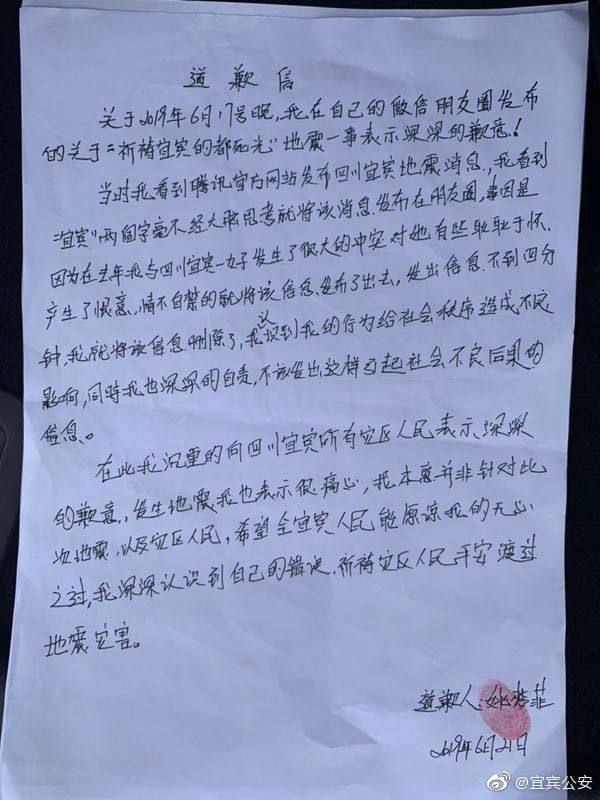 道歉信
关于2019年6月17号晚,我在自己的微信朋友圈发布
的关于“祈祷宜宾的都死光”地震一事表示深深的歉意!
当时我看到腾讯官方网站发布四川宜宾地震消息,我看到
“宜宾”两个字毫不经大脑思考就将该消息发布在朋友圈,事因是
因为在去年我与四川宜宾一女子发生了很大的冲突对她有些耿耿于怀,
产生了恨意,情不自禁的就将该信息发布了出去,发出信息不到四分
钟,我就将该信息删除了,我认识到我的行为给社会秩序造成不良
影响,同时我也深深的自责,不该发出这样引起社会不良后果的
信息。
在此我沉重的向四川宜宾所有灾区人民表示深深
的歉意,发生地震我也表示很痛心,我本意并非针对此
次地震,以及灾区人民,希望全宜宾人民能原谅我的无心
之过,我深深认识到自己的错误,祈祷灾区人民平安渡过
地震灾害。
道歉人:姚梦菲
2019年6月21日
@宜宾公安